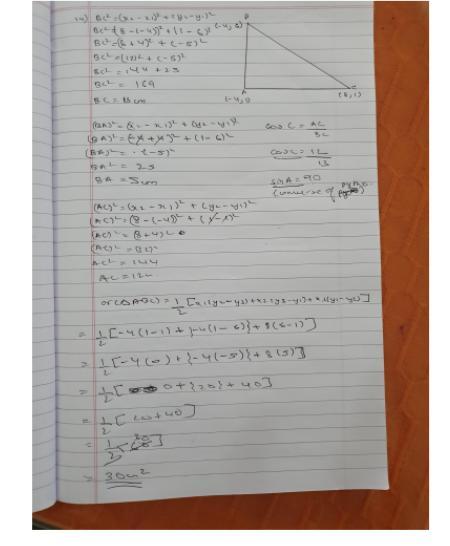 BC² = (x₂ - x₁)² + (y₂ - y₁)²
BC² = (8 - (-4))² + (1 - 6)²
BC² = (8 + 4)² + (-5)²
BC² = (12)² + (-5)²
BC² = 144 + 25
BC² = 169
BC = 13 cm
B
(-4, 6)
A
(-4, 1)
(8, 1)
(BA)² = (x₂ - x₁)² + (y₂ - y₁)²
(BA)² = (-4 + 4)² + (1 - 6)²
(BA)² = (-5)²
BA² = 25
BA = 5 cm
cos C = AC
BC
cos C = 12
13
sin A = 90
(converse of
(AC)² = (x₂ - x₁)² + (y₂ - y₁)²
(AC)² = (8 - (-4))² + (1 - 1)²
(AC)² = (8 + 4)²
(AC)² = (12)²
AC² = 144
AC = 12
ar(△ABC) = 1/2 [x₁(y₂ - y₃) + x₂(y₃ - y₁) + x₃(y₁ - y₂)]
= 1/2 [-4(1 - 1) + {-4(1 - 6)} + 8(6 - 1)]
= 1/2 [-4(0) + {-4(-5)} + 8(5)]
= 1/2 [0 + {20} + 40]
= 1/2 [20 + 40]
= 1/2
= 30 cm²